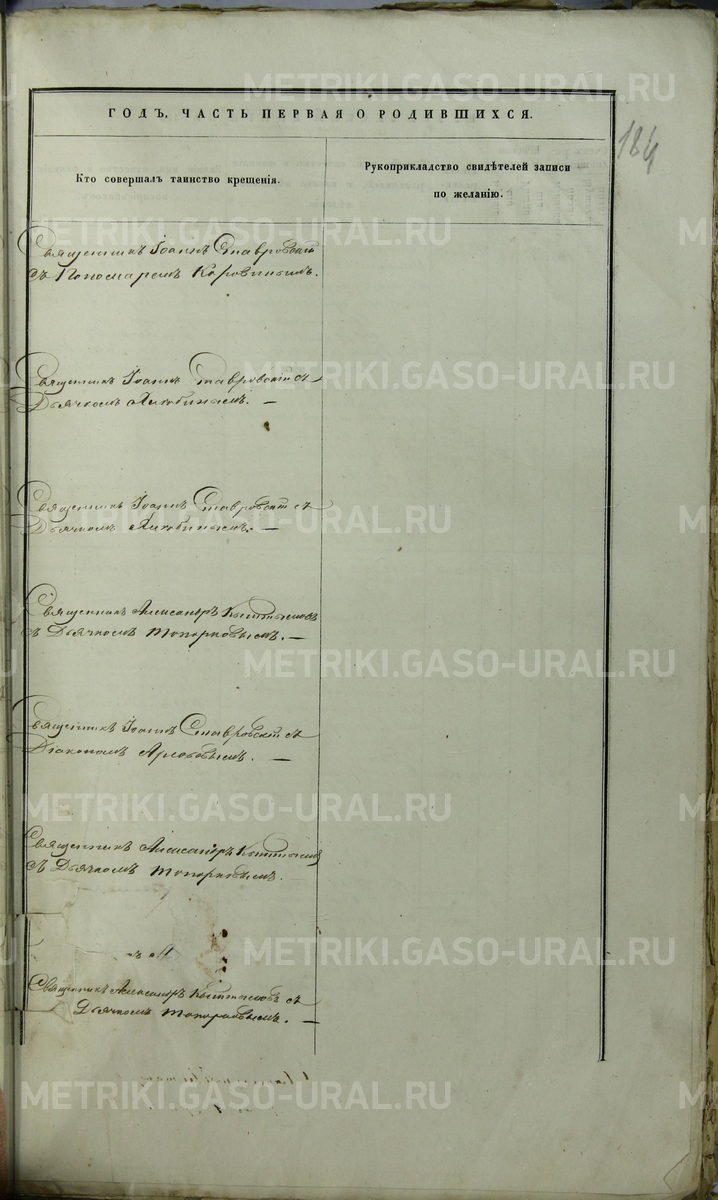 184
ГОДЪ. ЧАСТЬ ПЕРВАЯ О РОДИВШИХСЯ.
Кто совершалъ таинство крещенія.
Рукоприкладство свидѣтелей записи
по желанію.
Священникъ Іоаннъ Ставровскій
съ Пономаремъ Коровинымъ.
Священникъ Іоаннъ Ставровскій съ
Дьячкомъ Хлюбинымъ. —
Священникъ Іоаннъ Ставровскій съ
Дьячкомъ Хлюбинымъ. —
Священникъ Александръ Кыштымовъ
съ Дьячкомъ Топорковымъ. —
Священникъ Іоаннъ Ставровскій съ
Діакономъ —
Священникъ Александръ Кыштымовъ
съ Дьячкомъ Топорковымъ.
Священникъ Александръ Кыштымовъ съ
Дьячкомъ Топорковымъ. —
METRIKI.GASO-URAL.RU
METRIKI.GASO-URAL.RU
METRIKI.GASO-URAL.RU
METRIKI.GASO-URAL.RU
METRIKI.GASO-URAL.RU
METRIKI.GASO-URAL.RU
METRIKI.GASO-URAL.RU
METRIKI.GASO-URAL.RU